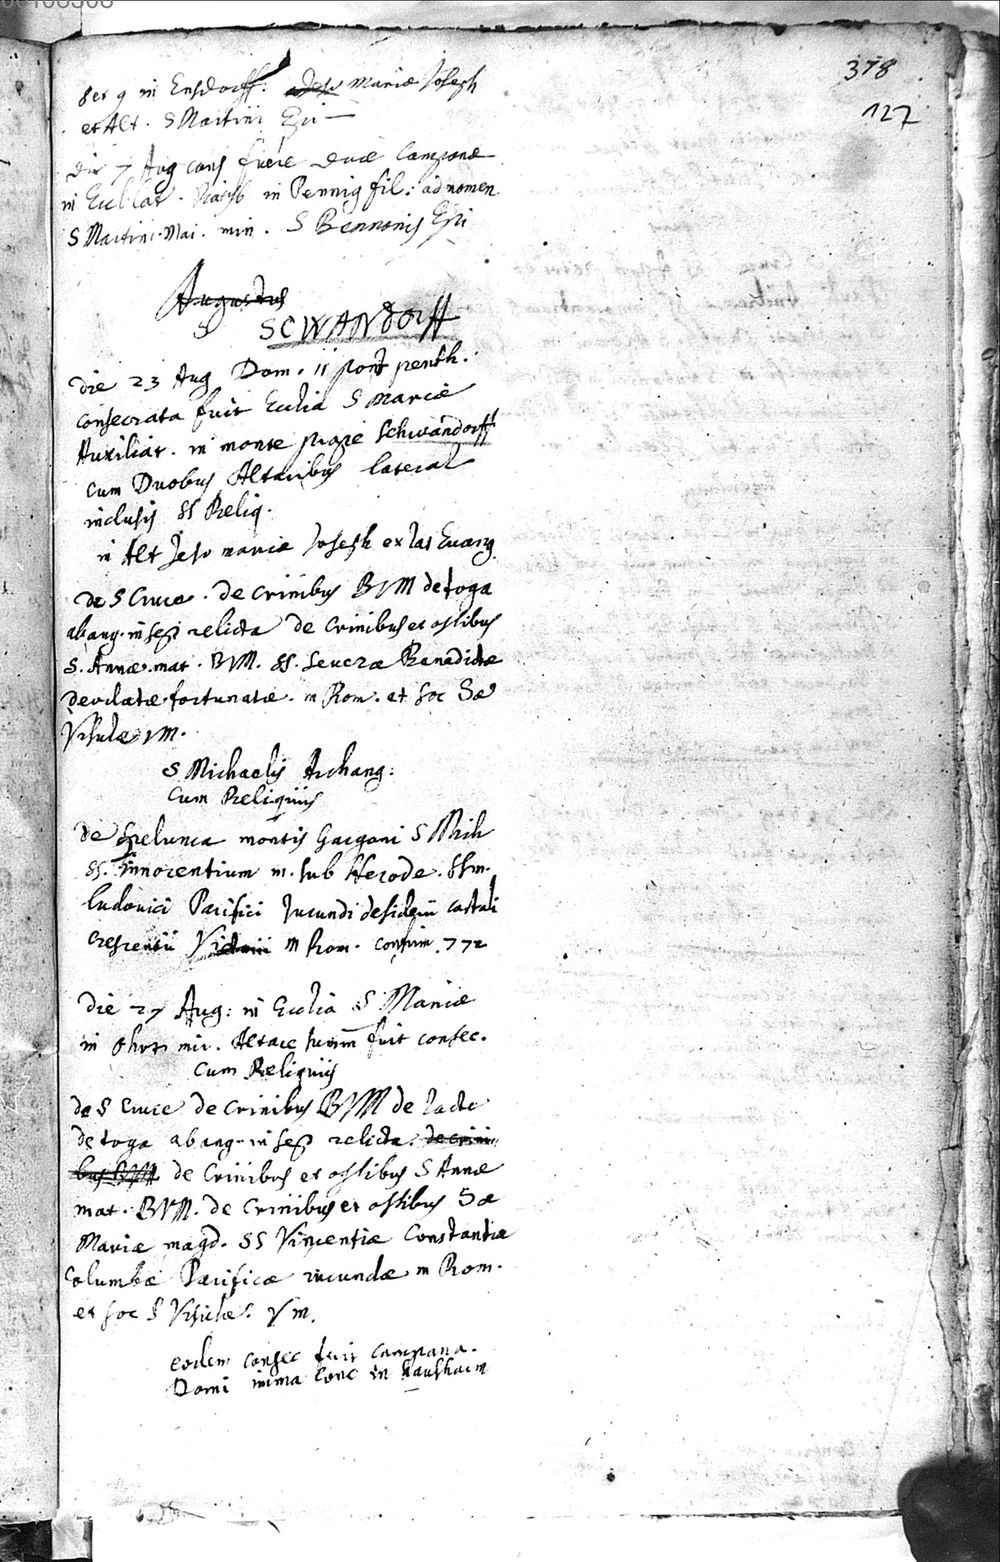 378
127
8 et 9 in Ensdorff. Jesu Mariæ Joseph
et Alt. S Martini Epi
Die 7 Aug cons fuere duæ Campanæ
in in Pennig fil: ad nomen
S Martini Mai. min. S Bennonis Epi
Augustus
SCWANDORFF
Die 23 Aug Dom. 11 post penth.
Consecrata fuit Ecclia S Mariæ
Auxiliat. in monte prope Schwandorff
cum Duobus Altaribus lateral
inclusis SS Reliq.
in Alt Jesu mariæ Joseph ex lat Evang
de S Cruce. de crinibus BVM de toga
ab ang. in sep relicta de Crinibus et ossibus
S. Annæ. mat. BVM. SS. Severæ Benedictæ
Deodatæ fortunatæ. m Rom. et Soc Sæ
Vrsulæ VM.
S Michaelis Archang:
Cum Reliquiis
de Spelunca montis Gargani S Mich
SS. Innocentium m. sub Herode. SSm.
Ludovici Pacifici Jucundi desiderii castuli
Crescentii Victorii m Rom. confirm. 772
Die 27 Aug: in Ecclia S Mariæ
in mir. Altare summ fuit consec.
Cum Reliquiis
de S Cruce de Crinibus BVM de lacte
de toga ab ang. in sep relicta. de crini-
bus BVM de Crinibus et ossibus S Annæ
mat. BVM. de Crinibus et ossibus Sæ
Mariæ magd. SS Vincentiæ Constantiæ
Columbæ Pacificæ iucundæ m Rom.
et soc S Vrsulæ. V m.
eodem consec fuit campana.
Domi imma Conc in